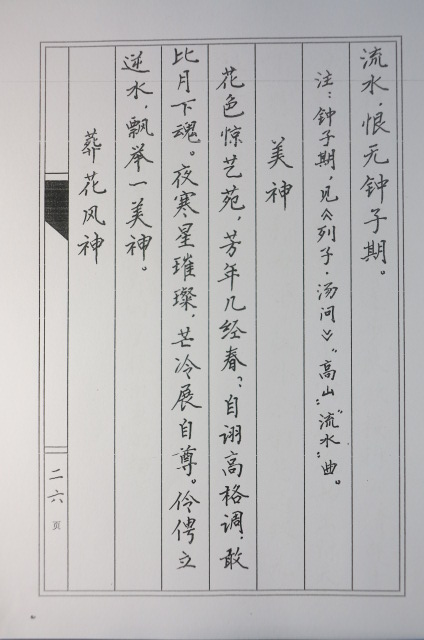 流水，恨无钟子期。
注：钟子期，见《列子·汤问》“高山”“流水”曲。
美神
花色惊艺苑，芳年几经春？自诩高格调，敢
比月下魂。夜寒星璀璨，芒冷展自尊。伶俜立
逆水，飘举一美神。
葬花风神
二六页